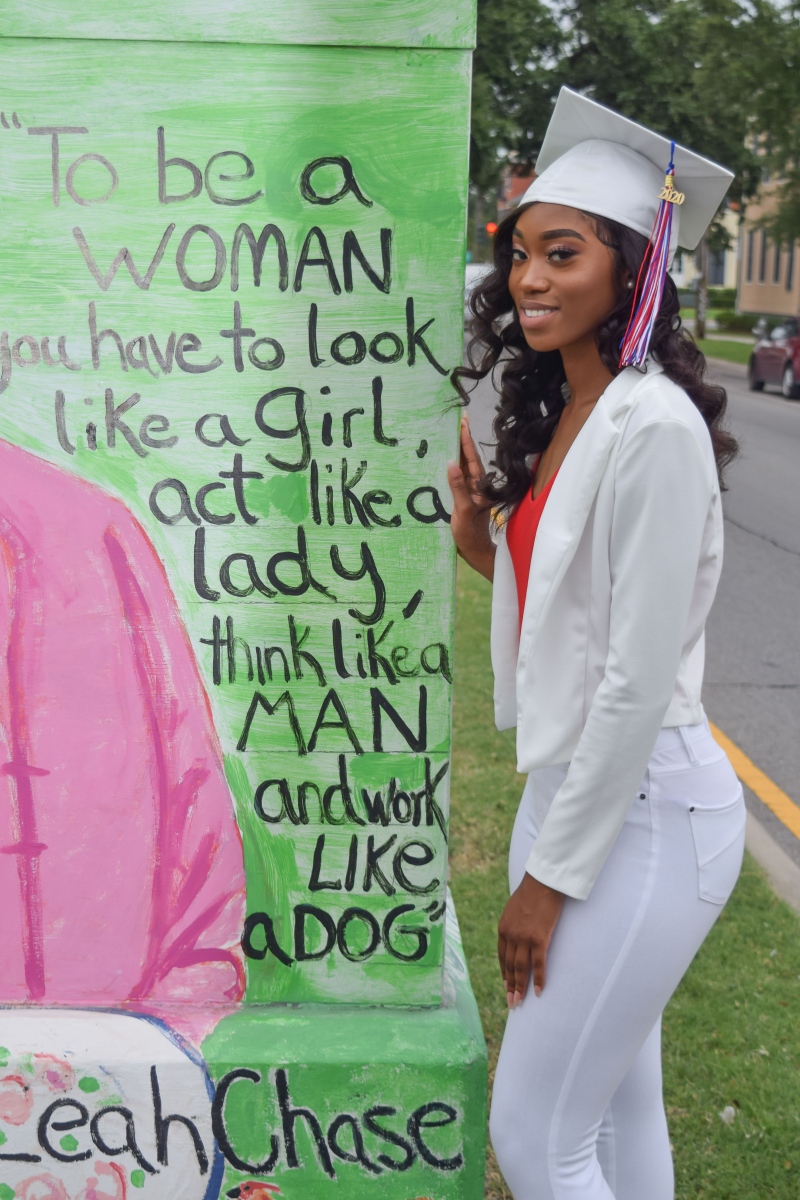 "To be a
WOMAN
you have to look
like a girl,
act like a
lady,
think like a
MAN
and work
LIKE
a DOG"
Leah Chase
2020